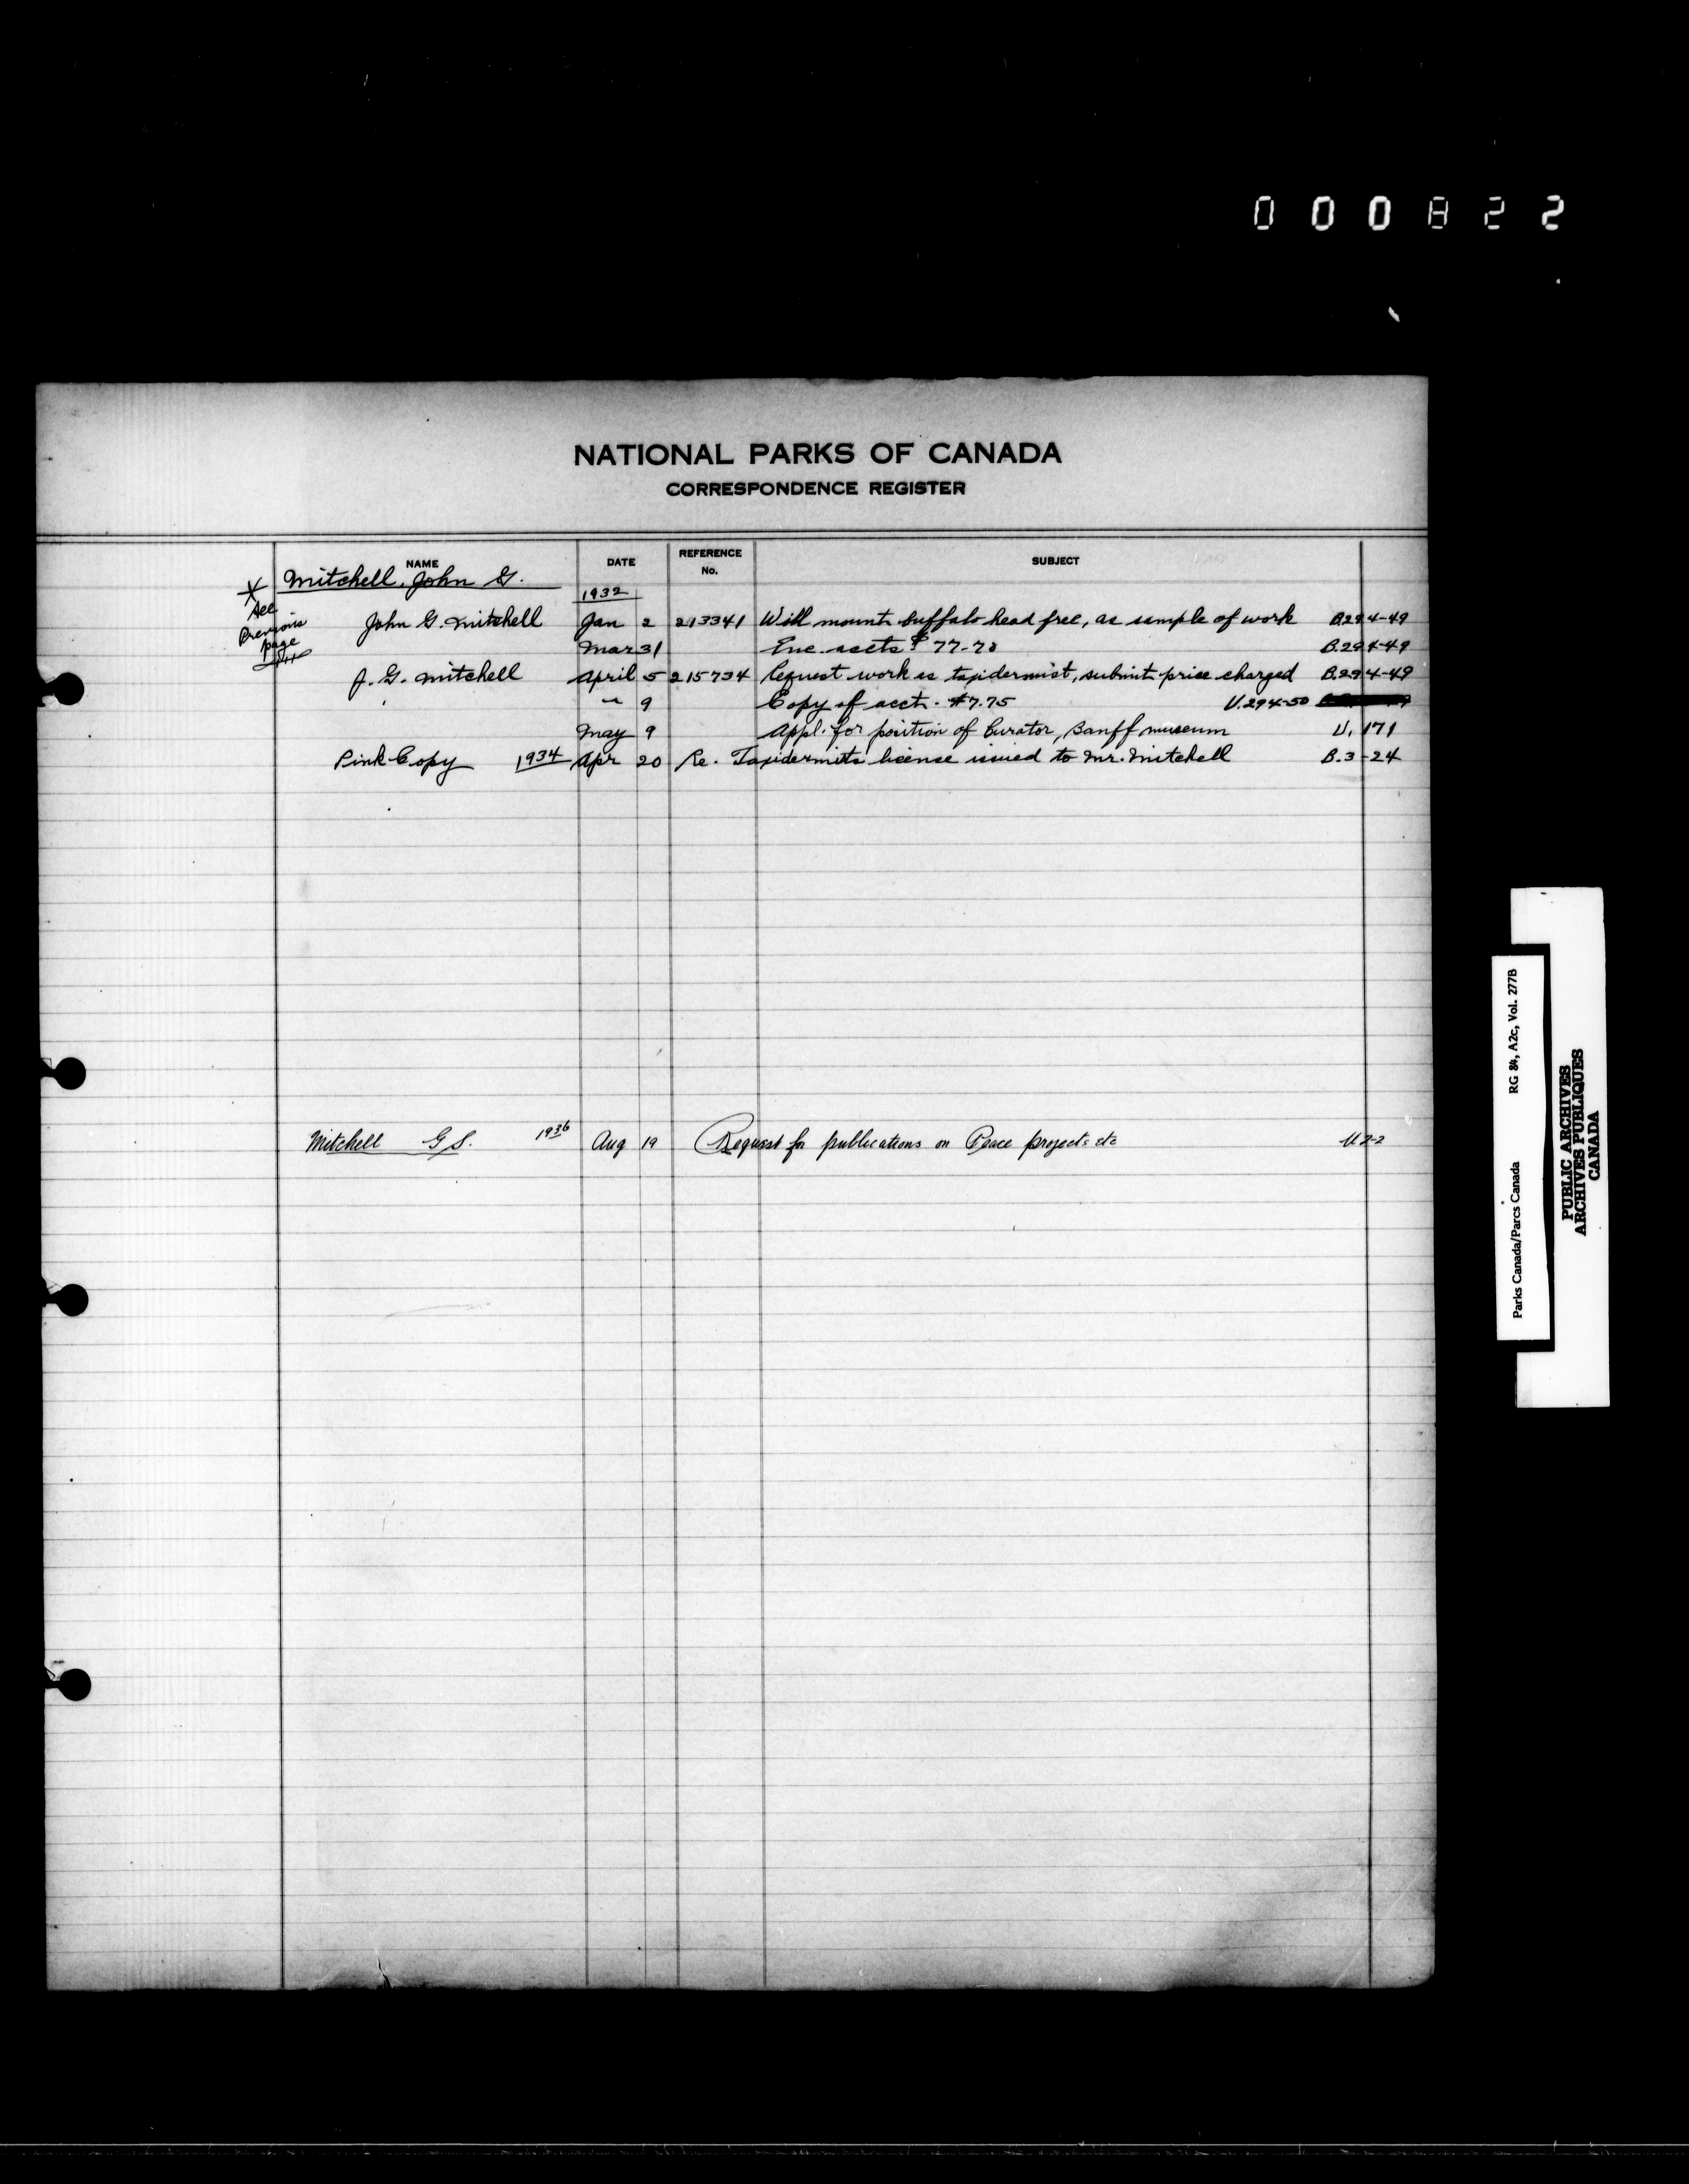 000822
NATIONAL PARKS OF CANADA
CORRESPONDENCE REGISTER
NAME DATE REFERENCE No. SUBJECT
Mitchell, John G.
1932
X See Previous page
John G. Mitchell Jan 2 213341 Will mount buffalo head free, as sample of work B.294-49
Mar 31 Enc. accts $ 77-70 B.294-49
J. G. Mitchell April 5 215734 Request work as taxidermist, submit price charged B.294-49
" 9 Copy of acct. $7.75 U.294-50
May 9 Appl. for position of Curator, Banff museum U. 171
Pink Copy 1934 Apr 20 Re. Taxidermits license issued to Mr. Mitchell B.3-24
Mitchell G S. 1936 Aug 19 Request for publications on Peace projects etc U 2-2
Parks Canada/Parcs Canada RG 84, A2c, Vol. 277B
PUBLIC ARCHIVES
ARCHIVES PUBLIQUES
CANADA